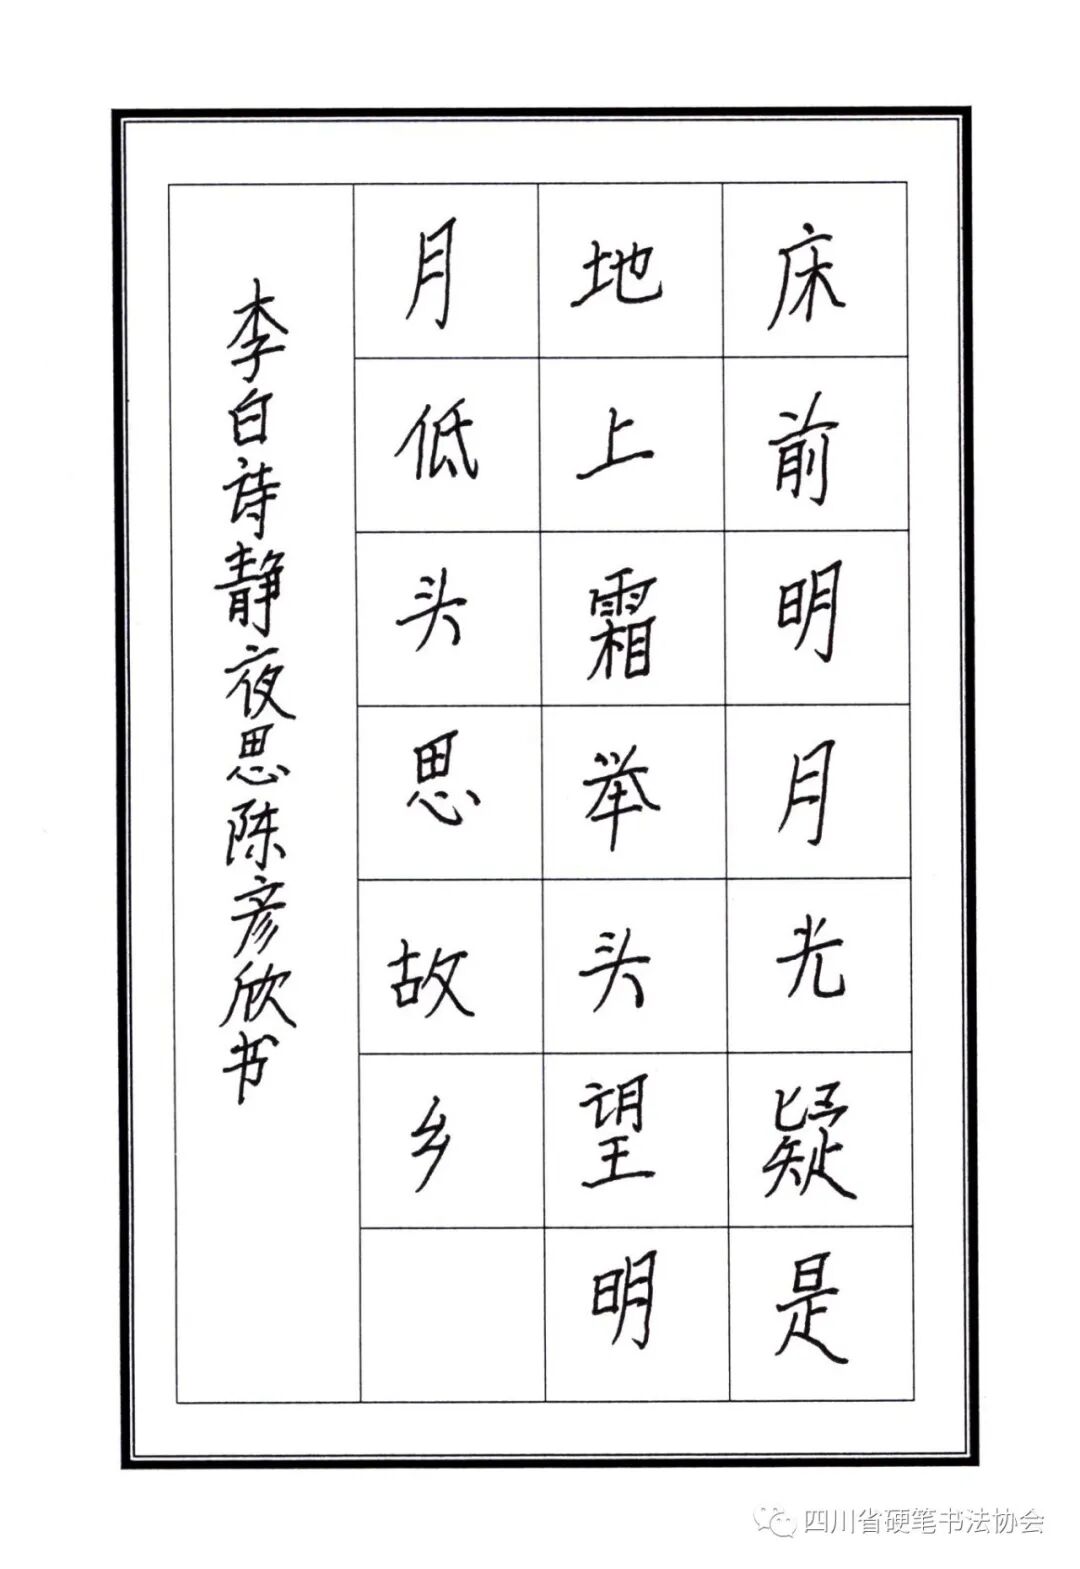 床前明月光疑是
地上霜举头望明
月低头思故乡
李白诗静夜思陈彦欣书
四川省硬笔书法协会